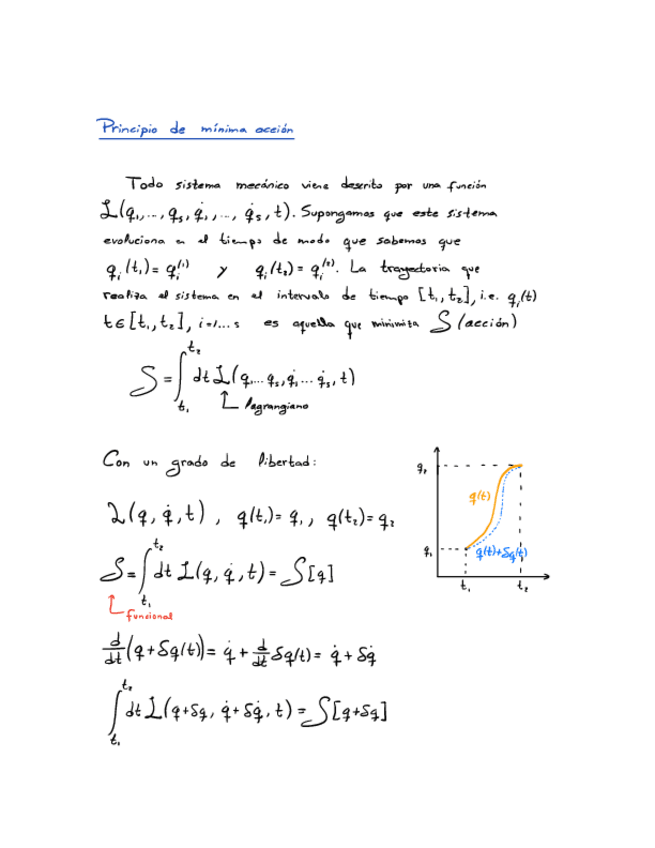 Principio de mínima acción
Todo sistema mecánico viene descrito por una función
L(q₁,..., qₛ, q̇₁,..., q̇ₛ, t). Supongamos que este sistema
evoluciona en el tiempo de modo que sabemos que
qᵢ(t₁) = qᵢ⁽¹⁾ y qᵢ(t₂) = qᵢ⁽²⁾. La trayectoria que
realiza el sistema en el intervalo de tiempo [t₁, t₂], i.e. qᵢ(t)
t ∈ [t₁, t₂], i=1...s es aquella que minimiza S (acción)
S = ∫_{t₁}^{t₂} dt L(q₁...qₛ, q̇₁...q̇ₛ, t)
lagrangiano
Con un grado de libertad:
L(q, q̇, t), q(t₁) = q₁, q(t₂) = q₂
S = ∫_{t₁}^{t₂} dt L(q, q̇, t) = S[q]
funcional
d/dt (q + δq(t)) = q̇ + d/dt δq(t) = q̇ + δq̇
∫_{t₁}^{t₂} dt L(q+δq, q̇+δq̇, t) = S[q+δq]
q₂
q(t)
q₁
q(t)+δq(t)
t₁ t₂